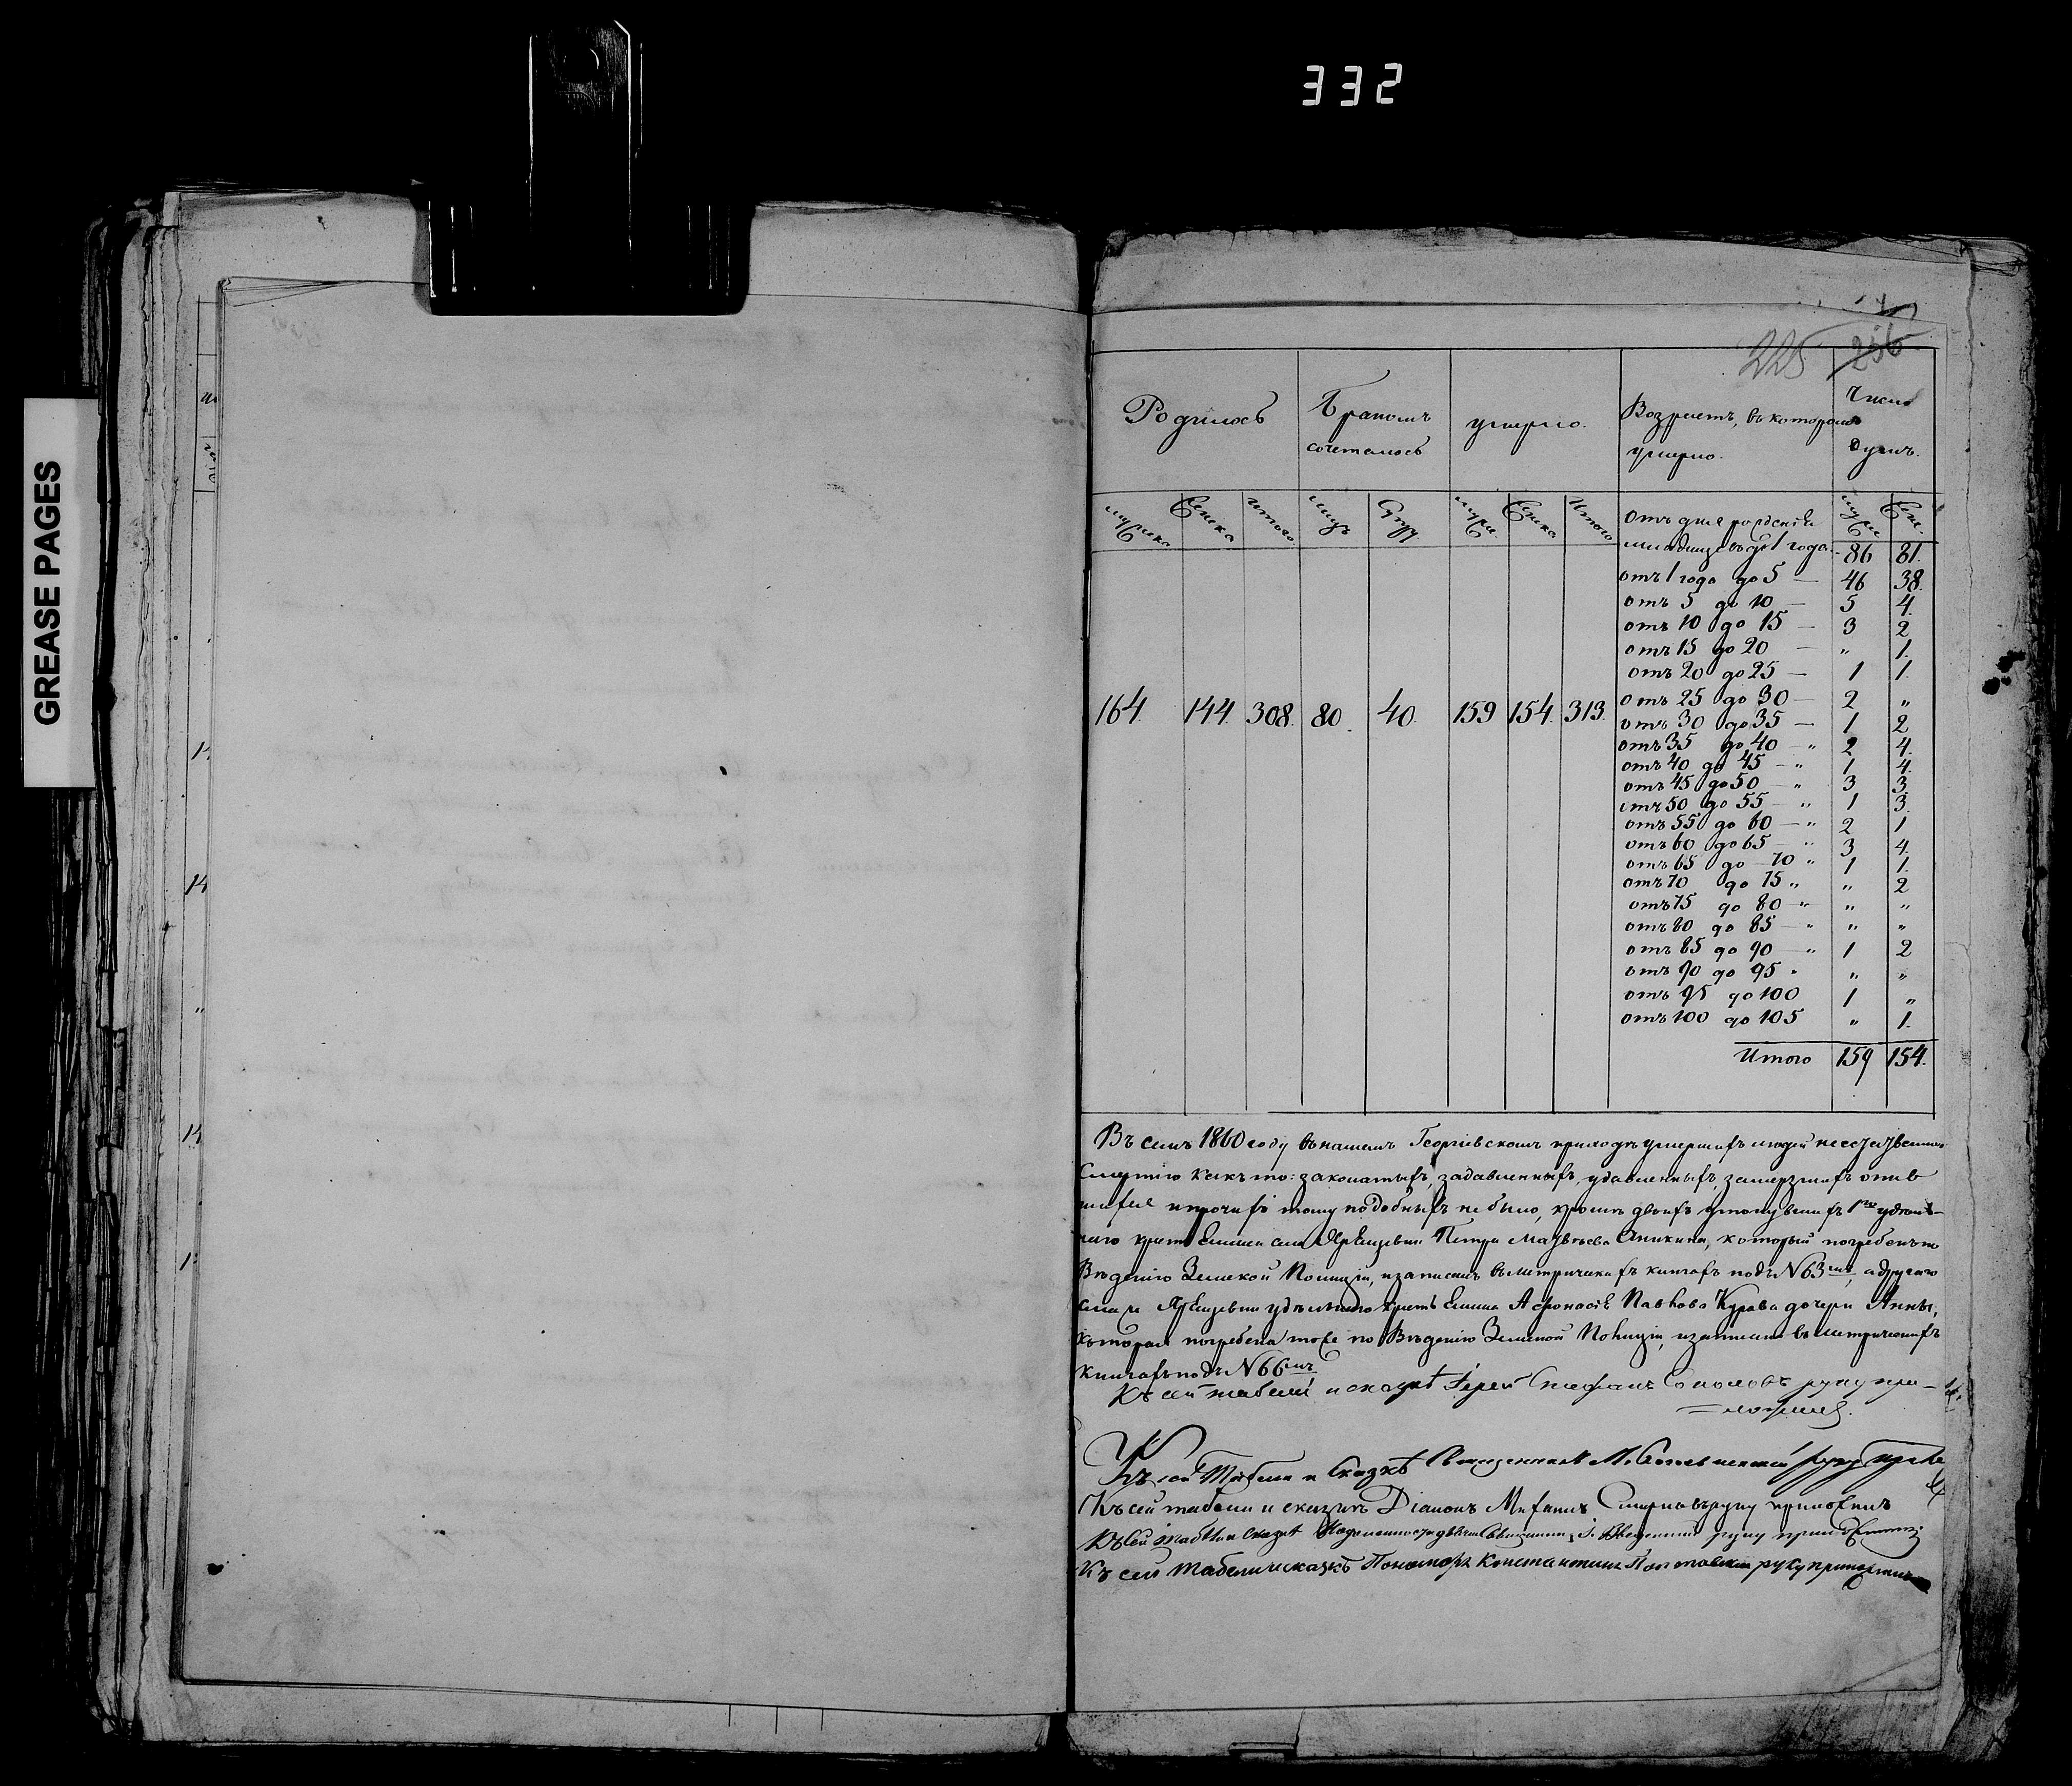 332
GREASE PAGES
225 256
Родилось
Бракомъ сочеталось
умерло.
Возрастъ, въ которомъ умерло.
Число душъ.
мужска
женска
итого
лицъ
супр
муж.
женска
Итого
муж
жен.
отъ дня рожденiя
младенцевъ до 1 года 86 81.
отъ 1 года до 5 — 46 38.
отъ 5 до 10 — 5 4.
отъ 10 до 15 — 3 2
отъ 15 до 20 — „ 1.
отъ 20 до 25 — 1 1.
отъ 25 до 30 — 2 „
отъ 30 до 35 — 1 2
отъ 35 до 40 — „ 2 4.
отъ 40 до 45 — „ 1 4.
отъ 45 до 50 — „ 3 3.
отъ 50 до 55 — „ 1 3.
отъ 55 до 60 — „ 2 1
отъ 60 до 65 — „ 3 4.
отъ 65 до 70 „ 1 1.
отъ 70 до 75 „ „ 2
отъ 75 до 80 — „ „ „
отъ 80 до 85 — „ „ „
отъ 85 до 90 — „ 1 2
отъ 90 до 95 „ „ „
отъ 95 до 100 1 „
отъ 100 до 105 „ 1.
164. 144. 308. 80. 40. 159 154. 313.
Итого 159 154.
Въ семъ 1860 году въ нашемъ Георгiевскомъ приходѣ умершихъ людей неестественною
смертiю какъ то: закопатыхъ, задавленныхъ, удавленныхъ, замерзшихъ опив
шихся и прочихъ тому подобныхъ не было, кромѣ двоихъ утонувшихъ 1го удѣль-
наго крестьянина Петра Матвѣева Аникина, который погребенъ по
Вѣденiю Земской Полицiи, и записанъ въ метрическихъ книгахъ подъ N 63мъ, а другаго
села удѣльнаго крестьянина Павлова дочери Анны,
которая погребена тоже по Вѣденiю Земской Полицiи, и записана въ метрическихъ
книгахъ подъ N 66мъ
Къ сей табели и сказкѣ Iерей Стефанъ Соколовъ руку при-
=ложилъ.
Къ сей Табели и Сказкѣ Священникъ М. руку
Къ сей табели и сказкѣ Дiаконъ Смирновъ руку приложилъ
Къ сей табели и сказкѣ Введенскiй руку приложилъ
Къ сей табели и сказкѣ Пономарь Константинъ руку приложилъ